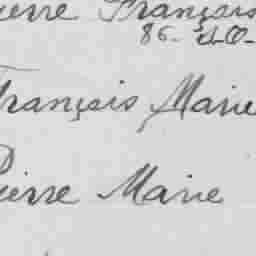 Pierre François
86-
François Marie
Pierre Marie